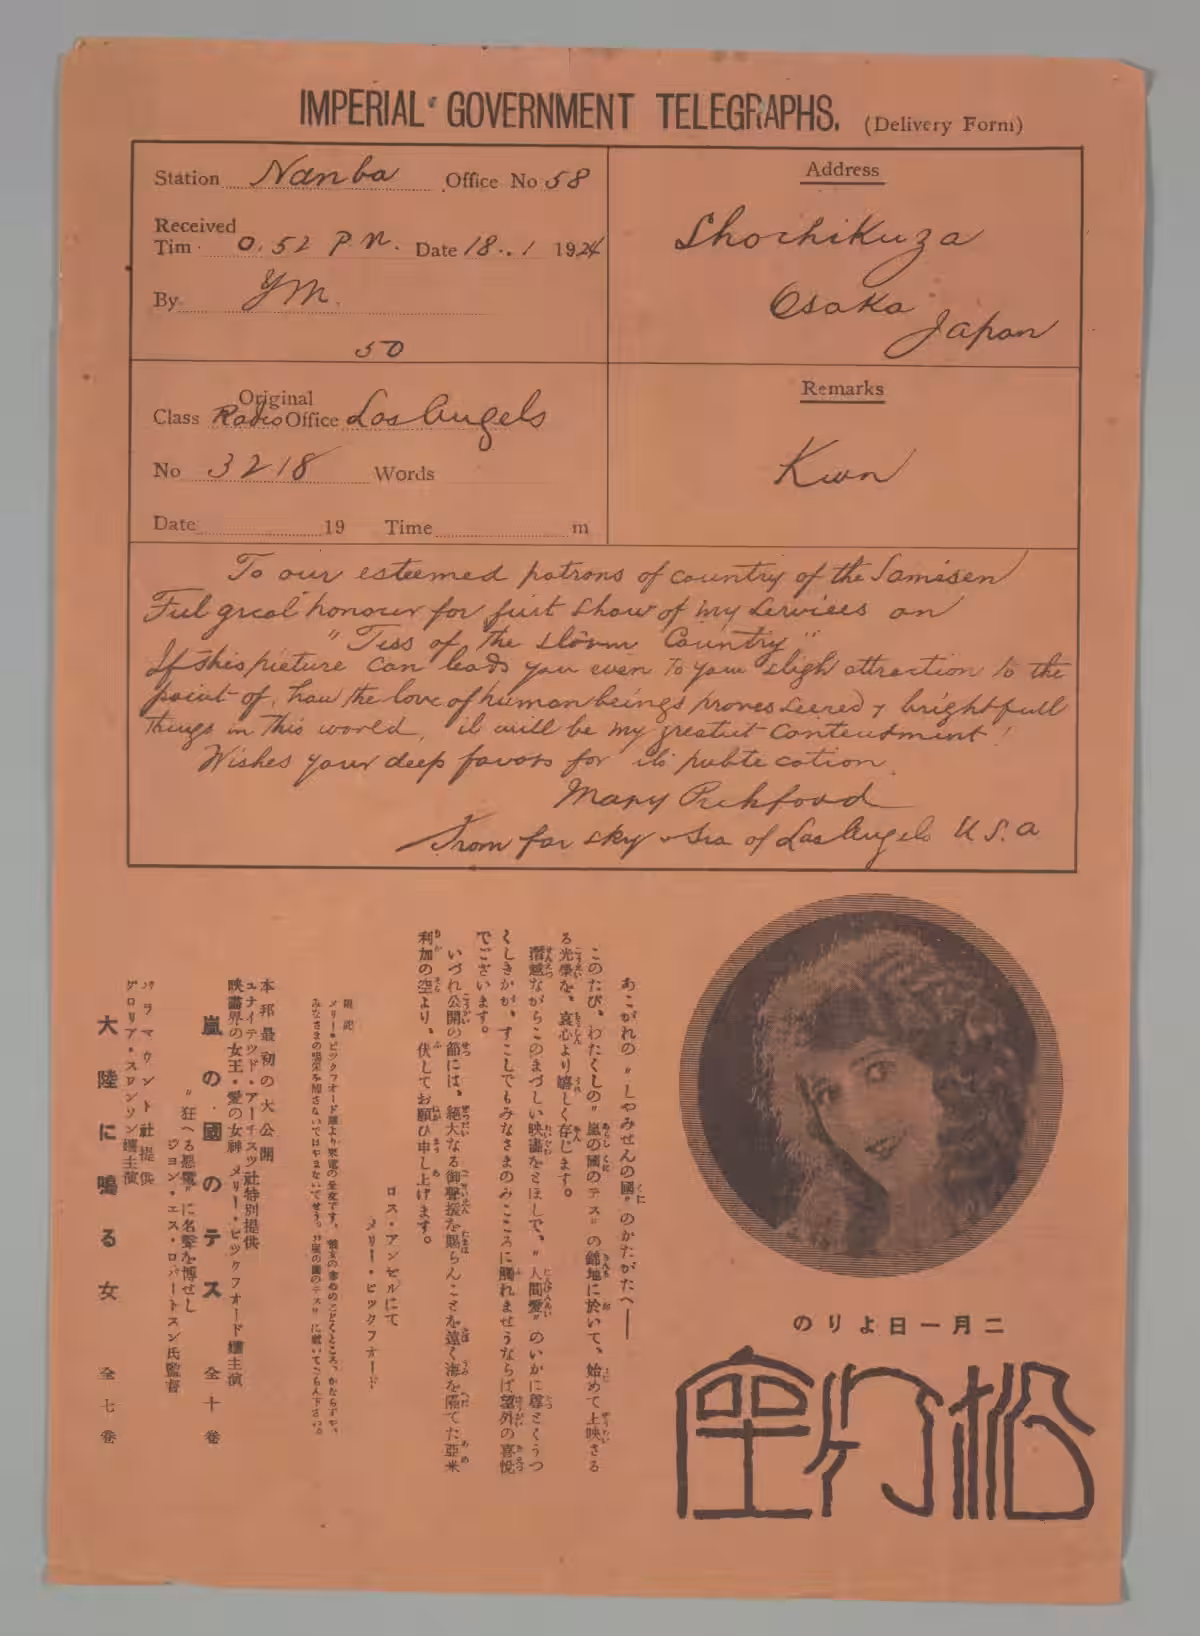 IMPERIAL GOVERNMENT TELEGRAPHS. (Delivery Form)
Station Nanba Office No 58
Received
Tim 0.52 P.M. Date 18..1 1924
By YM.
50
Address
Shochikuza
Osaka
Japan
Original
Class Radio Office Los Angels
No 3218 Words
Date 19 Time m
Remarks
Kwn
To our esteemed patrons of country of the Samisen
Ful great honour for first show of my services on
"Tess of the storm Country"
If this picture can leads you even to your sligh attraction to the
point of, how the love of human beings proves secred & brightfull
things in this world, it will be my greatest contentment!
Wishes your deep favors for its publication.
Mary Pickford
From far sky & sea of Los Angels U.S.A
二月一日よりの
松竹座
あこがれの〝しやみせんの國〟のかたがたへ――
このたび、わたくしの〝嵐の國のテス〟の錦地に於いて、始めて上映さる
る光榮を、衷心より嬉しく存じます。
潛越ながらこのまづしい映畵をとほして、〝人間愛〟のいかに尊とくうつ
くしきかが、すこしでもみなさまのみこころに觸れませうならば望外の喜悅
でございます。
いづれ公開の節には、絕大なる御聲援を賜らんことを遠く海を隔てた亞米
利加の空より、伏してお願ひ申し上げます。
ロス・アンゼルにて
メリー・ピツクフオード
メリー・ピツクフオード孃より來電の全文です。
本邦最初の大公開
ユナイテツド・アーチスツ社特別提供
映畵界の女王・愛の女神 メリー・ピツクフオード孃主演
嵐の國のテス 全十卷
〝狂へる惡魔〟に名聲を博せし
ジヨン・エス・ロバートスン氏監督
パラマウント社提供
グロリア・スワンソン孃主演
大陸に鳴る女 全七卷